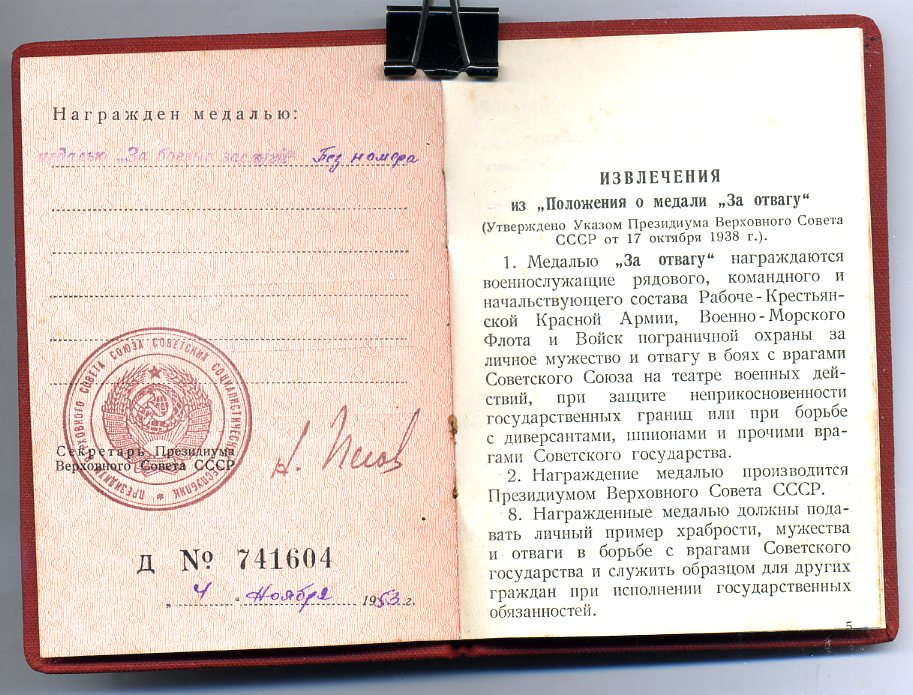 Награжден медалью:
медалью „За боевые заслуги“ Без номера
ПРЕЗИДИУМ ВЕРХОВНОГО СОВЕТА СОЮЗА СОВЕТСКИХ СОЦИАЛИСТИЧЕСКИХ РЕСПУБЛИК
Секретарь Президиума
Верховного Совета СССР
Д № 741604
„ 4 “ Ноября 1953 г.
ИЗВЛЕЧЕНИЯ
из „Положения о медали „За отвагу“
(Утверждено Указом Президиума Верховного Совета
СССР от 17 октября 1938 г.).
1. Медалью „За отвагу“ награждаются
военнослужащие рядового, командного и
начальствующего состава Рабоче-Крестьян-
ской Красной Армии, Военно-Морского
Флота и Войск пограничной охраны за
личное мужество и отвагу в боях с врагами
Советского Союза на театре военных дей-
ствий, при защите неприкосновенности
государственных границ или при борьбе
с диверсантами, шпионами и прочими вра-
гами Советского государства.
2. Награждение медалью производится
Президиумом Верховного Совета СССР.
8. Награжденные медалью должны пода-
вать личный пример храбрости, мужества
и отваги в борьбе с врагами Советского
государства и служить образцом для других
граждан при исполнении государственных
обязанностей.
5